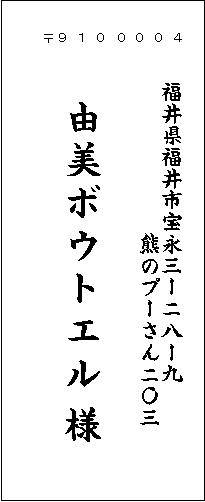 〒９１００００４
福井県福井市宝永三ー二八ー九
熊のプーさん二〇三
由美ボウトエル 様